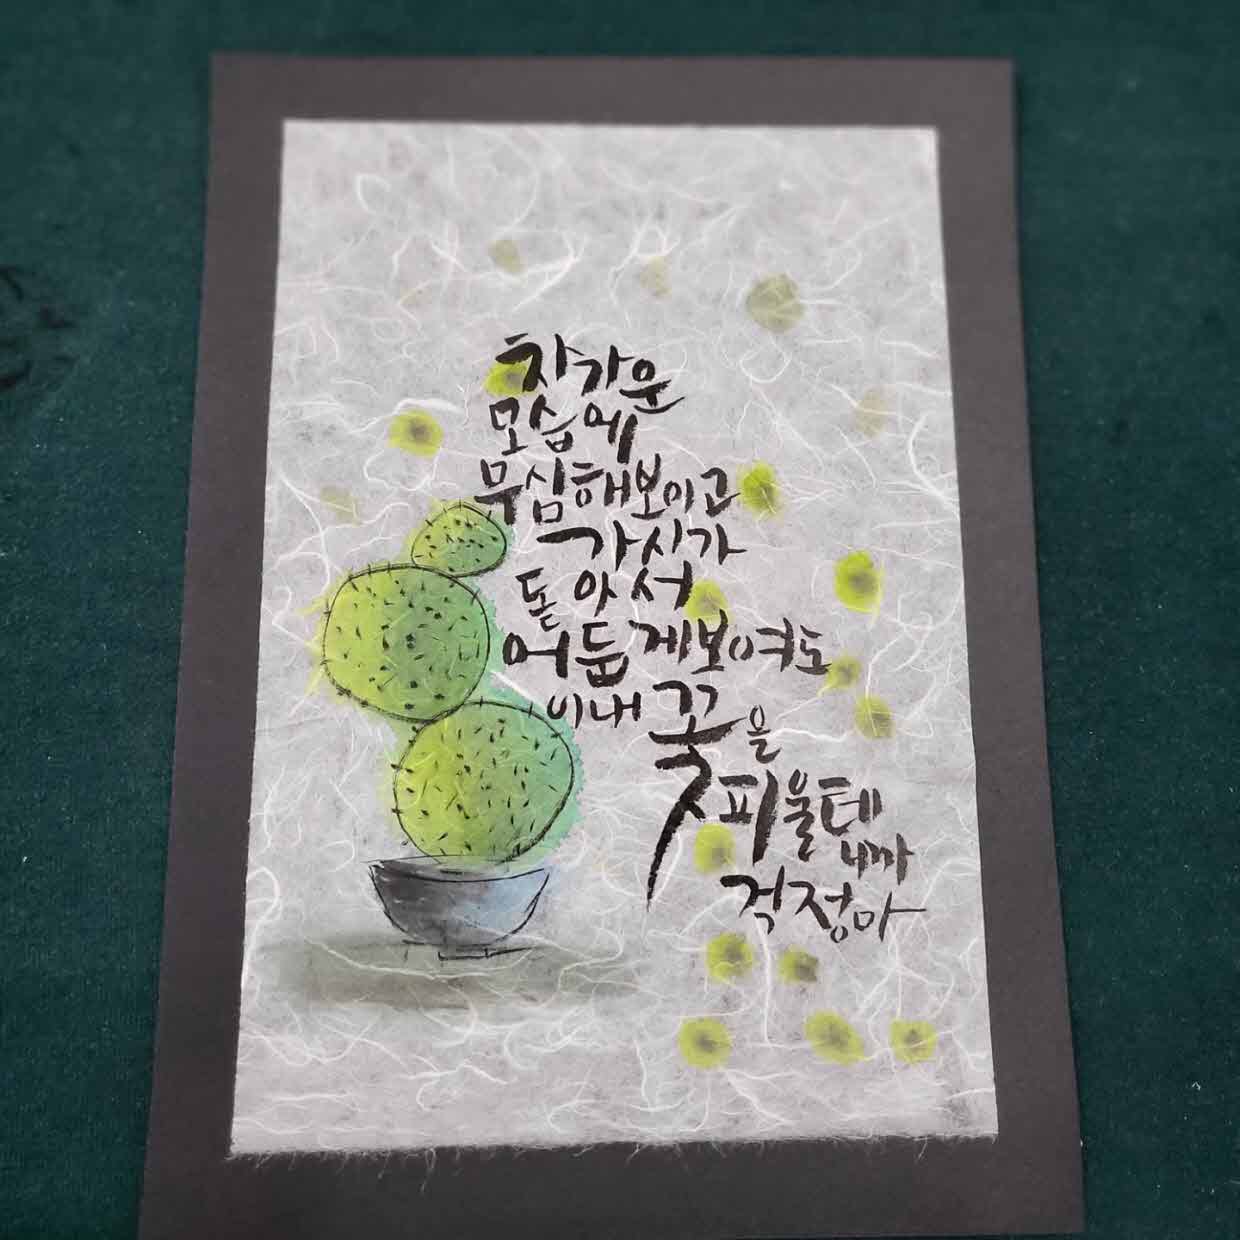 차가운
모습에
무심해보이고
가시가
돋아서
어둡게보여도
이내 꽃을
피울테
니까
걱정마